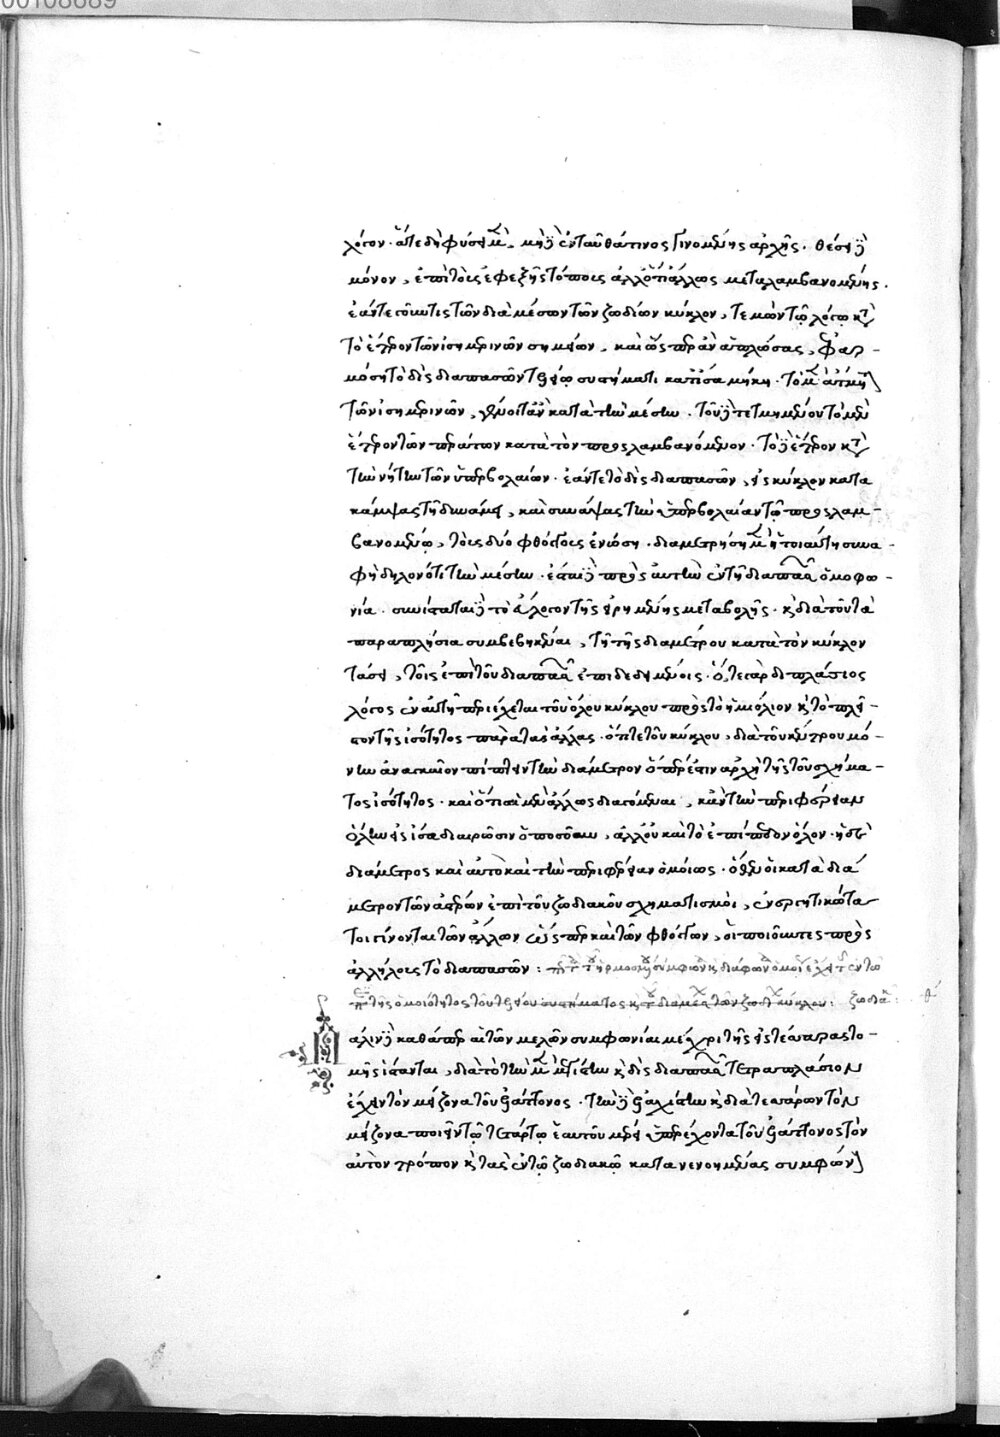 00108689
λόγον. ἅτε δὴ φύσει μὲν, μηδ' ἐνταῦθά τινος γινομένης ἀρχῆς. θέσει δὲ
μόνον, ἐπὶ τοῖς ἐφεξῆς τόποις ἄλλοτ' ἄλλως μεταλαμβανομένης.
ἐάν τε γοῦν τις τῶν διὰ μέσων τῶν ζωδίων κύκλον, τεμὼν τῷ λόγῳ κατὰ
τὸ ἕτερον τῶν ἰσημερινῶν σημείων, καὶ ὥσπερ ἀναπλώσας, ἐφαρ-
μόσῃ τὸ δὶς διαπασῶν τελείῳ συστήματι κατ' ἴσα μήκη. τὸ μὲν ἄτμητον
τῶν ἰσημερινῶν, γένοιτ' ἂν κατὰ τὴν μέσην. τοῦ δὲ τετμημένου τὸ μὲν
ἕτερον τῶν περάτων κατὰ τὸν προσλαμβανόμενον. τὸ δὲ ἕτερον κατὰ
τὴν νήτην τῶν ὑπερβολαίων. ἐάν τε τὸ δὶς διαπασῶν, εἰς κύκλον κατα
κάμψας τῇ δυνάμει, καὶ συνάψας τὴν ὑπερβολαίαν τῷ προσλαμ-
βανομένῳ, τοὺς δύο φθόγγους ἑνώσῃ. διαμετρήσει μὲν ἡ τοιαύτη συνα-
φὴ δηλονότι τὴν μέσην. ἔσται δὲ πρὸς αὐτὴν ἐν τῇ διαπασῶν ὁμοφω-
νία. συνίσταται δὲ τὸ εὔλογον τῆς εἰρημένης μεταβολῆς. καὶ διὰ τοῦ τὰ
παραπλήσια συμβεβηκέναι, τῇ τῆς διαμέτρου κατὰ τὸν κύκλον
τάσει, τοῖς ἐπὶ τοῦ διαπασῶν ἐπιδεδειγμένοις. ὅ, τε γὰρ διπλάσιος
λόγος ἐν αὐτῇ περιέχεται τοῦ ὅλου κύκλου πρὸς τὸ ἡμιόλιον καὶ τὸ πλεῖ-
στον τῆς ἰσότητος παρὰ τὰς ἄλλας. ὅ, τι τε τοῦ κύκλου, διὰ τοῦ κέντρου μό-
νην ἀναγκαῖον πίπτειν τὴν διάμετρον ὅπερ ἐστὶν ἀρχὴ τῆς τοῦ σχήμα-
τος ἰσότητος. καὶ ὅτι αἱ μὲν ἄλλως διαγόμεναι, κἂν τὴν περιφέρειαν
ὅλην εἰς ἴσα διαιρῶσιν ὁποσαοῦν, ἀλλ' οὐ καὶ τὸ ἐπίπεδον ὅλον. ἡ δὲ
διάμετρος καὶ αὐτὸ καὶ τὴν περιφέρειαν ὁμοίως. ὅθεν οἱ κατὰ διά
μετρον τῶν ἀστέρων ἐπὶ τοῦ ζωδιακοῦ σχηματισμοὶ, ἐνεργητικώτα
τοι γίνονται τῶν ἄλλων ὥσπερ καὶ τῶν φθόγγων, οἱ ποιοῦντες πρὸς
ἀλλήλους τὸ διαπασῶν:
αλιν δὲ καθάπερ αἱ τῶν μελῶν συμφωνίαι μέχρι τῆς εἰς τέσσαρας το-
μῆς ἵστανται, διὰ τὸ τὴν μὲν μεγίστην καὶ δὶς διαπασῶν τετραπλάσιον
ἔχειν τὸν μείζονα τοῦ ἐλάττονος. τὴν δὲ ἐλαχίστην καὶ διὰ τεσσάρων τὸν
μείζονα ποιεῖν τῷ τετάρτῳ ἑαυτοῦ μέρει ὑπερέχοντα τοῦ ἐλάττονος τὸν
αὐτὸν τρόπον καὶ τὰς ἐν τῷ ζωδιακῷ κατανενοημένας συμφών